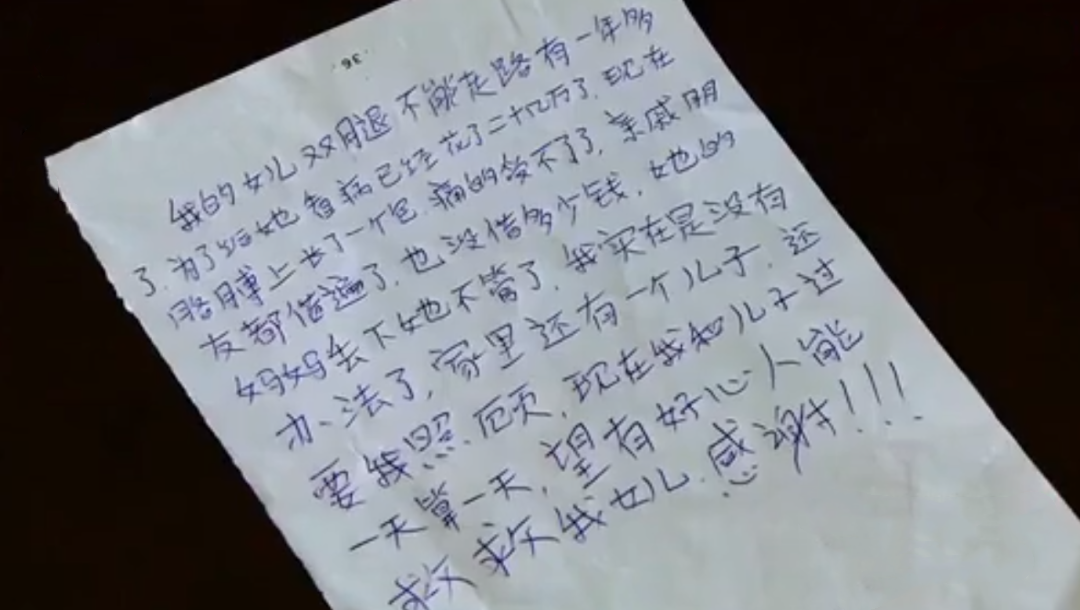 36
我的女儿双腿不能走路有一年多
了.为了给她看病已经花了二十几万了.现在
胳膊上长了一个包.痛的受不了了.亲戚朋
友都借遍了.也没借多少钱.她的
妈妈丢下她也不管了.我实在是没有
办法了.家里还有一个儿子.还
要我照顾.现在我和儿子过
一天算一天.望有好心人能
救救我女儿.感谢!!!